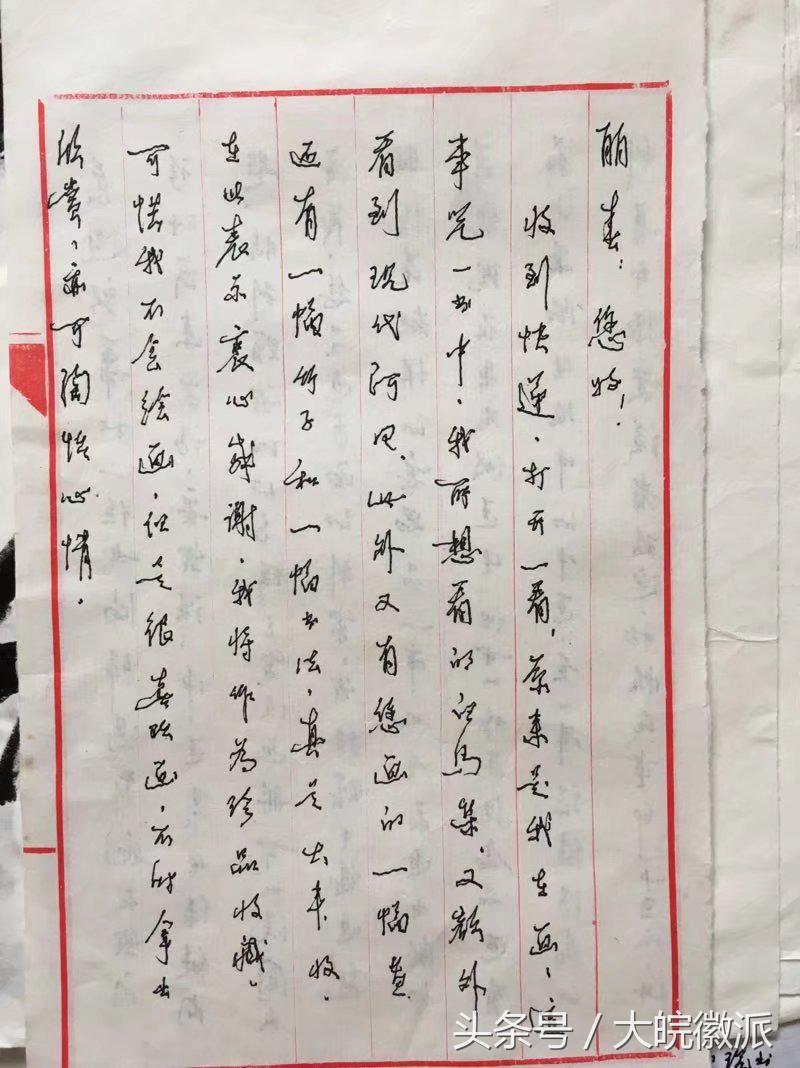 丽春：您好！
收到快递，打开一看，原来是我在画、
事凭一书中，我所想看的白马集，又额外
看到现代阿Q，此外又有您画的一幅画
还有一幅竹子和一幅书法，真是大丰收。
在此表示衷心感谢。我将作为珍品收藏。
可惜我不会绘画，但是很喜欢画，不时拿出
欣赏，亦可陶悟心情。
头条号／大皖徽派